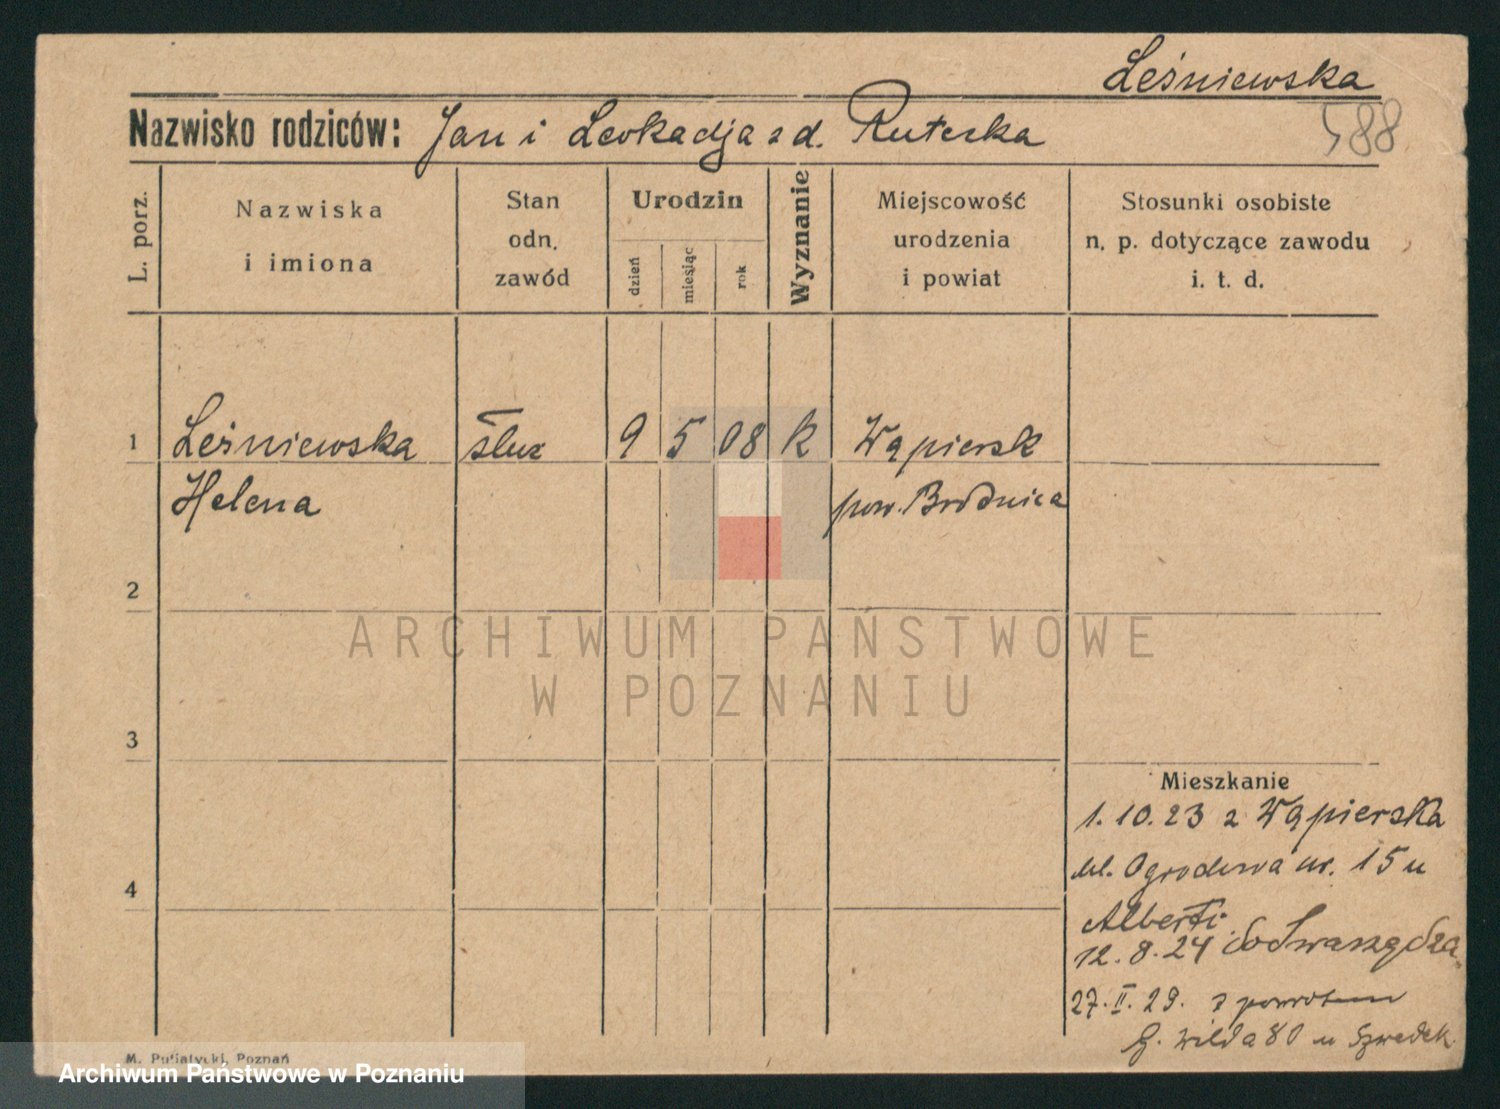 Leśniewska
Nazwisko rodziców: Jan i Leokadja z d. Ruterka
588
L. porz.
Nazwiska
i imiona
Stan
odn.
zawód
Urodzin
dzień
miesiąc
rok
Wyznanie
Miejscowość
urodzenia
i powiat
Stosunki osobiste
n. p. dotyczące zawodu
i. t. d.
1 Leśniewska służ 9 5 08 k Wąpiersk
Helena pow. Brodnica
2
ARCHIWUM PAŃSTWOWE
W POZNANIU
3
Mieszkanie
1.10.23 z Wąpierska
ul. Ogrodowa nr. 15 u
4
Alberti
12.8.24 do Swarzędza
27.II.29. z powrotem
G. Wilda 80 u Szwedek
M. Putiatycki, Poznań
Archiwum Państwowe w Poznaniu